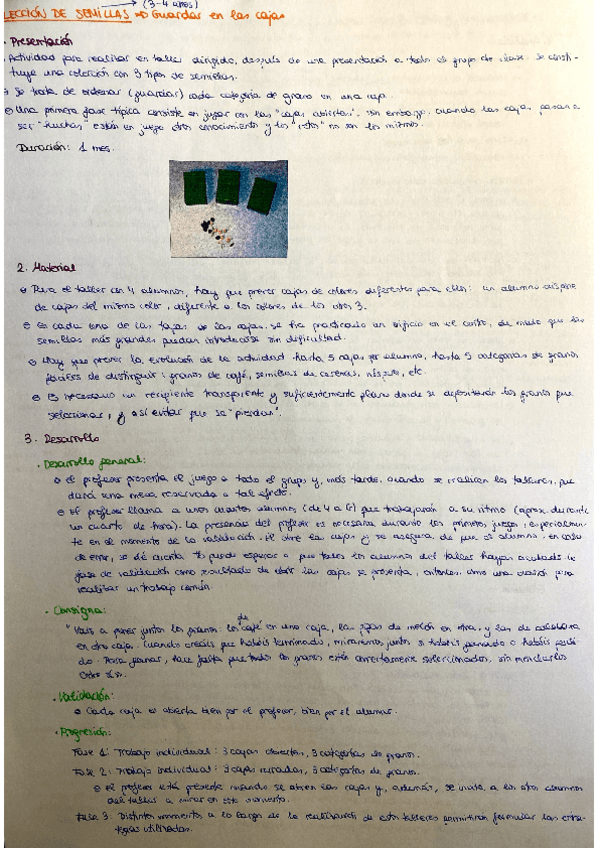 (3-4 años)
LECCIÓN DE SEMILLAS => Guardar en las cajas
. Presentación
. Actividad para realizar en taller dirigido, después de una presentación a todo el grupo de clase. Se consti-
tuye una colección con 3 tipos de semillas.
Se trata de ordenar (guardar) cada categoría de grano en una caja.
Una primera fase típica consiste en jugar con las "cajas abiertas". Sin embargo, cuando las cajas pasan a
ser "huchas" están en juego otros conocimientos y los "retos" no son los mismos.
Duración: 1 mes.
2. Material
Para el taller con 4 alumnos, hay que prever cajas de colores diferentes para ellos: un alumno dispone
de cajas del mismo color, diferente a los colores de los otros 3.
En cada una de las tapas de las cajas se ha practicado un orificio en el centro, de modo que las
semillas más grandes puedan introducirse sin dificultad.
Hay que prever la evolución de la actividad hasta 5 cajas por alumno, hasta 5 categorías de granos
fáciles de distinguir: granos de café, semillas de cerezas, níspero, etc.
Es necesario un recipiente transparente y suficientemente plano donde se depositarán los granos por
seleccionar, y así evitar que se "pierdan".
3. Desarrollo
. Desarrollo general:
El profesor presenta el juego a todo el grupo y, más tarde, cuando se realicen los talleres, que
dará una mesa reservada a tal efecto.
El profesor llama a unos cuantos alumnos (de 4 a 6) que trabajarán a su ritmo (aprox. durante
un cuarto de hora). La presencia del profesor es necesaria durante los primeros juegos, especialmen-
te en el momento de la validación. Él abre las cajas y se asegura de que el alumno, en caso
de error, se dé cuenta. Te puedo esperar a que todos los alumnos del taller hayan acabado. La
fase de validación como resultado de abrir las cajas se presenta, entonces, como una ocasión para
realizar un trabajo común.
. Consigna:
"Vais a poner juntos los granos: los de café en una caja, las pipas de melón en otra, y las de calabaza
en otra caja. Cuando creáis que habéis terminado, miraremos juntos si habéis ganado o habéis perdi-
do. Para ganar, hace falta que todos los granos estén correctamente seleccionados, sin mezclarlos
. Validación:
Cada caja es abierta bien por el profesor, bien por el alumno.
. Progresión:
Fase 1: Trabajo individual: 3 cajas abiertas, 3 categorías de granos.
Fase 2: Trabajo individual: 3 cajas cerradas, 3 categorías de granos.
El profesor está presente cuando se abren las cajas y, además, se invita a los otros alumnos
del taller a mirar en ese momento.
Fase 3: Distintos momentos a lo largo de la realización de estos talleres permitirán formular las estra-
tegias utilizadas.